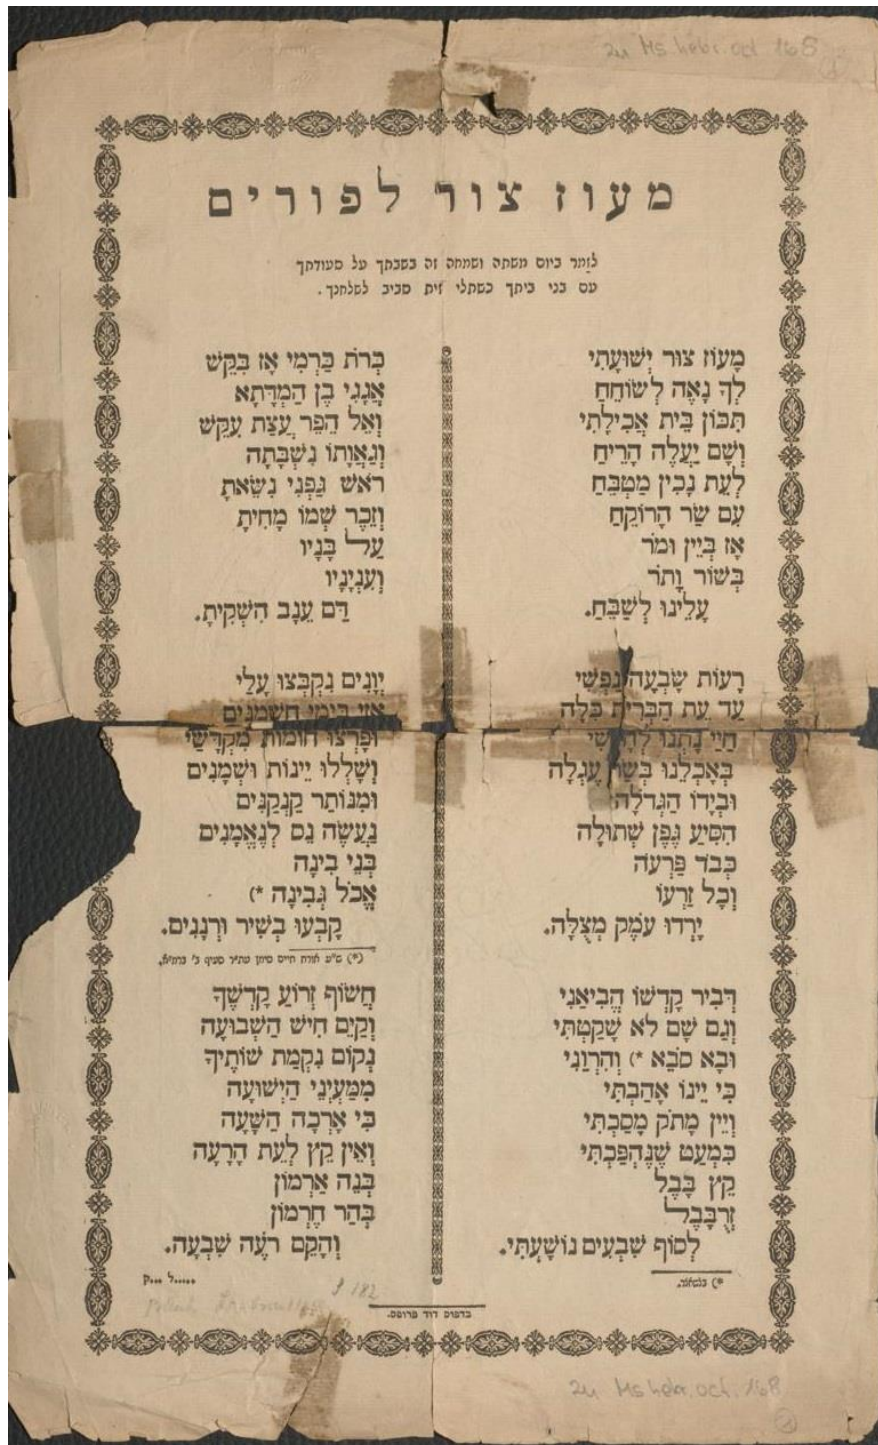 zu Ms hebr. oct 168
מעוז צור לפורים
לזַמר ביום משתה ושמחה זה בשבתך על סעודתך
עם בני ביתך כשתלי זית סביב לשלחנך.
מָעוֹז צוּר יְשׁוּעָתִי
לְךָ נָאֶה לְשׂוֹחֵחַ
תִּכּוֹן בֵּית אֲכִילָתִי
וְשָׁם יַעֲלֶה הָרֵיחַ
לְעֵת נָכִין מַטְבֵּחַ
עִם שַׂר הָרוֹקֵחַ
אָז בְּיַיִן וּמֹר
בְּשׁוֹר וָתֹר
עָלֵינוּ לְשַׁבֵּחַ.
רָעוֹת שָׂבְעָה נַפְשִׁי
עַד עֵת הַבְּרִית כִּלָּה
חַיַּי נָתְנוּ
בְּאָכְלֵנוּ בְּשַׂר עֶגְלָה
וּבְיָדוֹ הַגְּדֹלָה
הִסִּיעַ גֶּפֶן שְׁתוּלָה
כְּבֹד פַּרְעֹה
וְכָל זַרְעוֹ
יָרְדוּ עֹמֶק מְצֻלָה.
דְּבִיר קָדְשׁוֹ הֱבִיאַנִי
וְגַם שָׁם לֹא שָׁקַטְתִּי
וּבָא סֹבֵא *) וְהִרְוַנִי
כִּי יֵינוֹ אָהַבְתִּי
וְיֵין מָתֹק מָסַכְתִּי
כִּמְעַט שֶׁנֶּהְפַּכְתִּי
קֵץ בָּבֶל
זְרֻבָּבֶל
לְסוֹף שִׁבְעִים נוֹשָׁעְתִּי.
*) בלשאצר.
כְּרֹת כַּרְמִי אָז בִּקֵּשׁ
אֲגָגִי בֶן הַמְּדָתָא
וְאֵל הֵפֵר עֲצַת עִקֵּשׁ
וְגַאֲוָתוֹ נִשְׁבָּתָה
רֹאשׁ גַּפְנִי נִשֵּׂאתָ
וְזֵכֶר שְׁמוֹ מָחִיתָ
עַל בָּנָיו
וְעִנְיָנָיו
דַּם עֵנָב הִשְׁקִיתָ.
יְוָנִים נִקְבְּצוּ עָלַי
אֲזַי בִּימֵי חַשְׁמַנִּים
וּפָרְצוּ חוֹמוֹת מִקְדָּשַׁי
וְשָׁלְלוּ יֵינוֹת וּשְׁמָנִים
וּמִנּוֹתַר קַנְקַנִּים
נַעֲשָׂה נֵס לְנֶאֱמָנִים
בְּנֵי בִינָה
אֱכֹל גְּבִינָה *)
קָבְעוּ בְּשִׁיר וּרְנָנִים.
*) ש״ע אורח חיים סימן עת״ר סעיף ב׳ בהג״ה.
חֲשׂוֹף זְרוֹעַ קָדְשֶׁךָ
וְקַיֵּם חִישׁ הַשְּׁבוּעָה
נְקוֹם נִקְמַת שׁוֹתֶיךָ
מִמַּעְיְנֵי הַיְשׁוּעָה
כִּי אָרְכָה הַשָּׁעָה
וְאֵין קֵץ לְעֵת הָרָעָה
בְּנֵה אַרְמוֹן
בְּהַר חֶרְמוֹן
וְהָקֵם רֹעֶה שִׁבְעָה.
ל.....ק...
182
בדפוס דוד פרופס.
zu Ms hebr. oct. 168